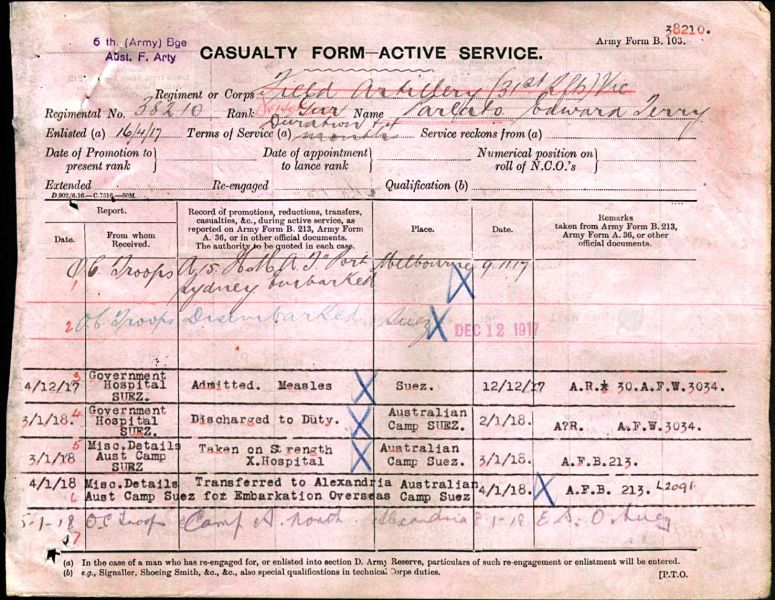 38210.
6 th. (Army) Bge
Aust. F. Arty
CASUALTY FORM—ACTIVE SERVICE.
Army Form B. 103.
Regiment or Corps Field Artillery (31st Rfts) Vic
Regimental No. 38210 Rank Gnr Name Edward Terry
Enlisted (a) 16/4/17 Terms of Service (a) Duration & 4 months Service reckons from (a)
Date of Promotion to present rank } Date of appointment to lance rank } Numerical position on roll of N.C.O.'s }
Extended Re-engaged Qualification (b)
D.902/6.16.—C.7516.—50M.
Report.
Date. From whom Received.
Record of promotions, reductions, transfers, casualties, &c., during active service, as reported on Army Form B. 213, Army Form A. 36, or in other official documents. The authority to be quoted in each case.
Place.
Date.
Remarks taken from Army Form B. 213, Army Form A. 36, or other official documents.
1 O.C. Troops A/15 H.M.A.T. Port Sydney Embarked Melbourne 9.11.17
2 O.C. Troops Disembarked Suez DEC 12 1917
3
4/12/17 Government Hospital SUEZ. Admitted. Measles Suez. 12/12/17 A.R. 30.A.F.W.3034.
4
3/1/18. Government Hospital SUEZ. Discharged to Duty. Australian Camp SUEZ. 2/1/18. A?R. A.F.W.3034.
5
3/1/18 Misc.Details Aust Camp SURZ Taken on Strength X.Hospital Australian Camp Suez. 3/1/18. A.F.B.213.
6
4/1/18 Misc.Details Aust Camp Suez Transferred to Alexandria for Embarkation Overseas Australian Camp Suez 4/1/18. A.F.B. 213. L2091
7
5-1-18 O.C Troop Camp A. North Alexandria 8-1-18
(a) In the case of a man who has re-engaged for, or enlisted into section D. Army Reserve, particulars of such re-engagement or enlistment will be entered.
(b) e.g., Signaller, Shoeing Smith, &c., &c., also special qualifications in technical Corps duties.
[P.T.O.